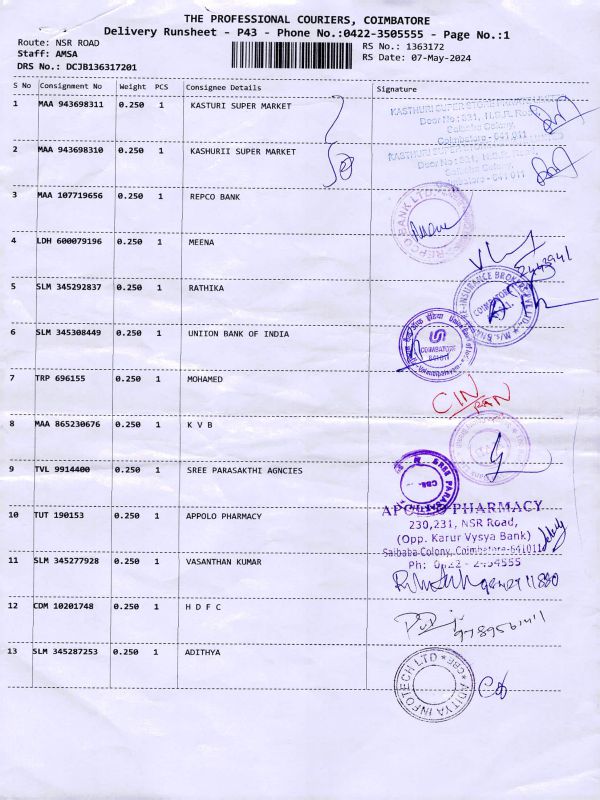 THE PROFESSIONAL COURIERS, COIMBATORE
Delivery Runsheet - P43 - Phone No.:0422-3505555 - Page No.:1
Route: NSR ROAD
Staff: AMSA
DRS No.: DCJB136317201
RS No.: 1363172
RS Date: 07-May-2024
S No Consignment No Weight PCS Consignee Details Signature
1 MAA 943698311 0.250 1 KASTURI SUPER MARKET
Door No: 531, N.S.R. Road
Saibaba Colony,
Coimbatore - 641 011
2 MAA 943698310 0.250 1 KASHURII SUPER MARKET
3 MAA 107719656 0.250 1 REPCO BANK
REPCO BANK LTD
4 LDH 600079196 0.250 1 MEENA
5 SLM 345292837 0.250 1 RATHIKA
6 SLM 345308449 0.250 1 UNIION BANK OF INDIA
COIMBATORE
641011
7 TRP 696155 0.250 1 MOHAMED
CIN
8 MAA 865230676 0.250 1 K V B
9 TVL 9914400 0.250 1 SREE PARASAKTHI AGNCIES
CBE
10 TUT 190153 0.250 1 APPOLO PHARMACY
APOLLO PHARMACY
230,231, NSR Road,
(Opp. Karur Vysya Bank)
Saibaba Colony, Coimbatore-641011
Ph: 0422 - 2434555
11 SLM 345277928 0.250 1 VASANTHAN KUMAR
12 CDM 10201748 0.250 1 H D F C
13 SLM 345287253 0.250 1 ADITHYA
ADITYA INFOTECH LTD * CBE *